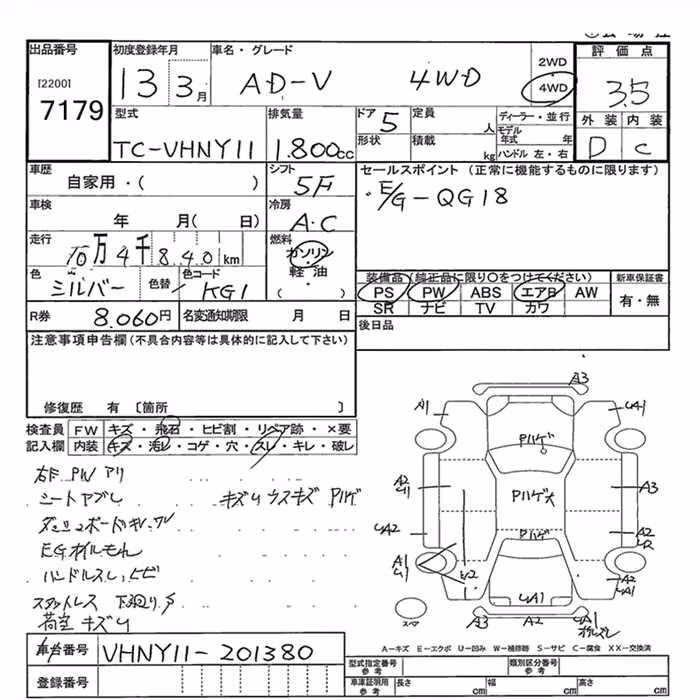 出品番号 初度登録年月 車名・グレード 2WD 評価点
[2200] 13 3月 AD-V 4WD 4WD 3.5
7179 型式 排気量 ドア 5 定員 人 ディーラー・並行 外装 内装
TC-VHNY11 1.800cc 形状 積載 kg モデル年式 年 ハンドル 左・右 D C
車歴 シフト セールスポイント (正常に機能するものに限ります)
自家用・( ) 5F ・E/G-QG18
車検 冷房
年 月( 日) A・C
走行 燃料
10万4千840km ガソリン
色 色替 色コード 軽油
シルバー KG1 ・( )
装備品(純正品に限り○をつけてください) 新車保証書
PS PW ABS エアB AW 有・無
SR ナビ TV カワ
R券 8.060円 名変通知期限 月 日 後日品
注意事項申告欄(不具合内容等は具体的に記入して下さい)
修復歴 有 〔箇所 〕
検査員 FW キズ・飛石・ヒビ割・リペア跡・×要
記入欄 内装 キズ・汚レ・コゲ・穴・スレ・キレ・破レ
右F PW アリ
シートヤブレ キズU ウスキズ Pハゲ
EGオイルもれ
ハンドルスレ ヒビ
荷室 キズU
A3
A1 UA1
Pハゲ
A2 U1 Pハゲ大 A3
UA2 Pハゲ A2
A1 U1 A2 UA1
UA1
スペア A3 A2 UA1
A-キズ E-エクボ U-凹み W-補修跡 S-サビ C-腐食 XX-交換済
車台番号 VHNY11-201380
型式指定番号 参考 類別区分番号 参考
登録番号 車庫証明用 参考 長さ cm 幅 cm 高さ cm